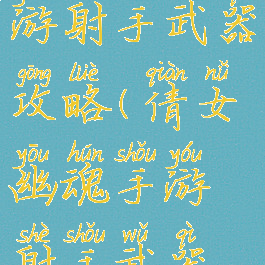 游射手武器
gōng lüè qiàn nǚ
攻略(倩女
yōu hún shǒu yóu
幽魂手游
shè shǒu wǔ qì
射手武器